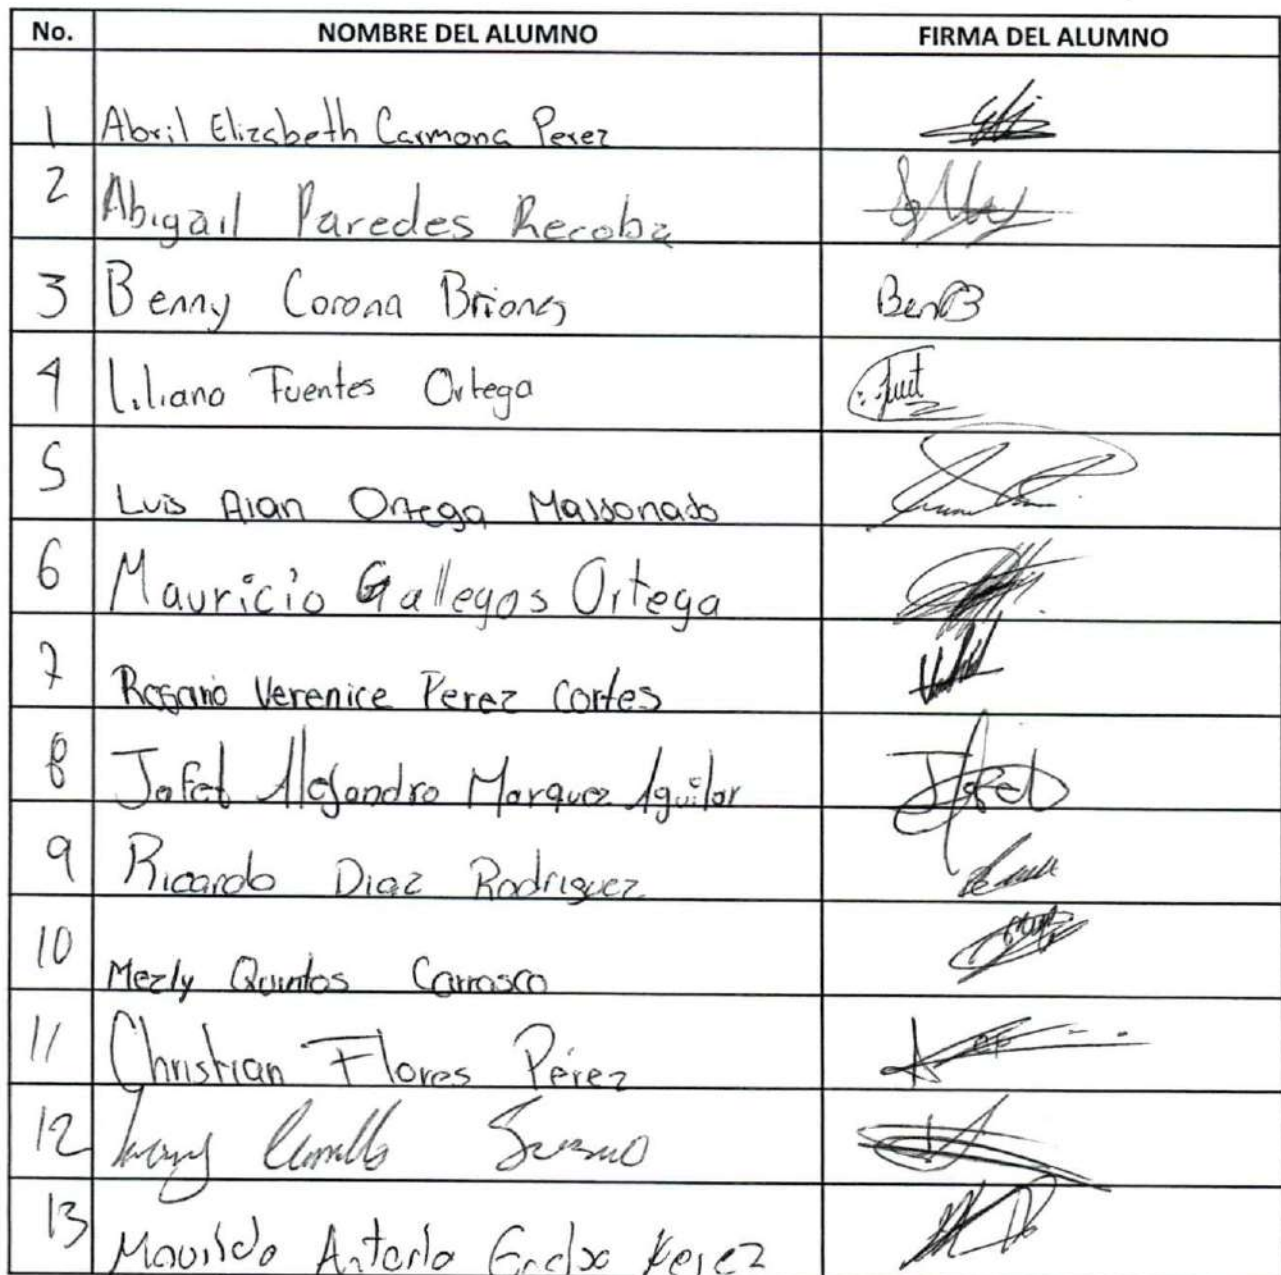 No. NOMBRE DEL ALUMNO FIRMA DEL ALUMNO
1 Abril Elizabeth Carmona Perez
2 Abigail Paredes Recoba
3 Benny Corona Briones BenB
4 Liliana Fuentes Ortega
5 Luis Alan Ortega Maldonado
6 Mauricio Gallegos Ortega
7 Rosario Verenice Perez Cortes
8 Jafet Alejandro Marquez Aguilar Jafet
9 Ricardo Diaz Rodriguez
10 Mezly Quintos Carrasco
11 Christian Flores Pérez
12
13 Antonio Perez